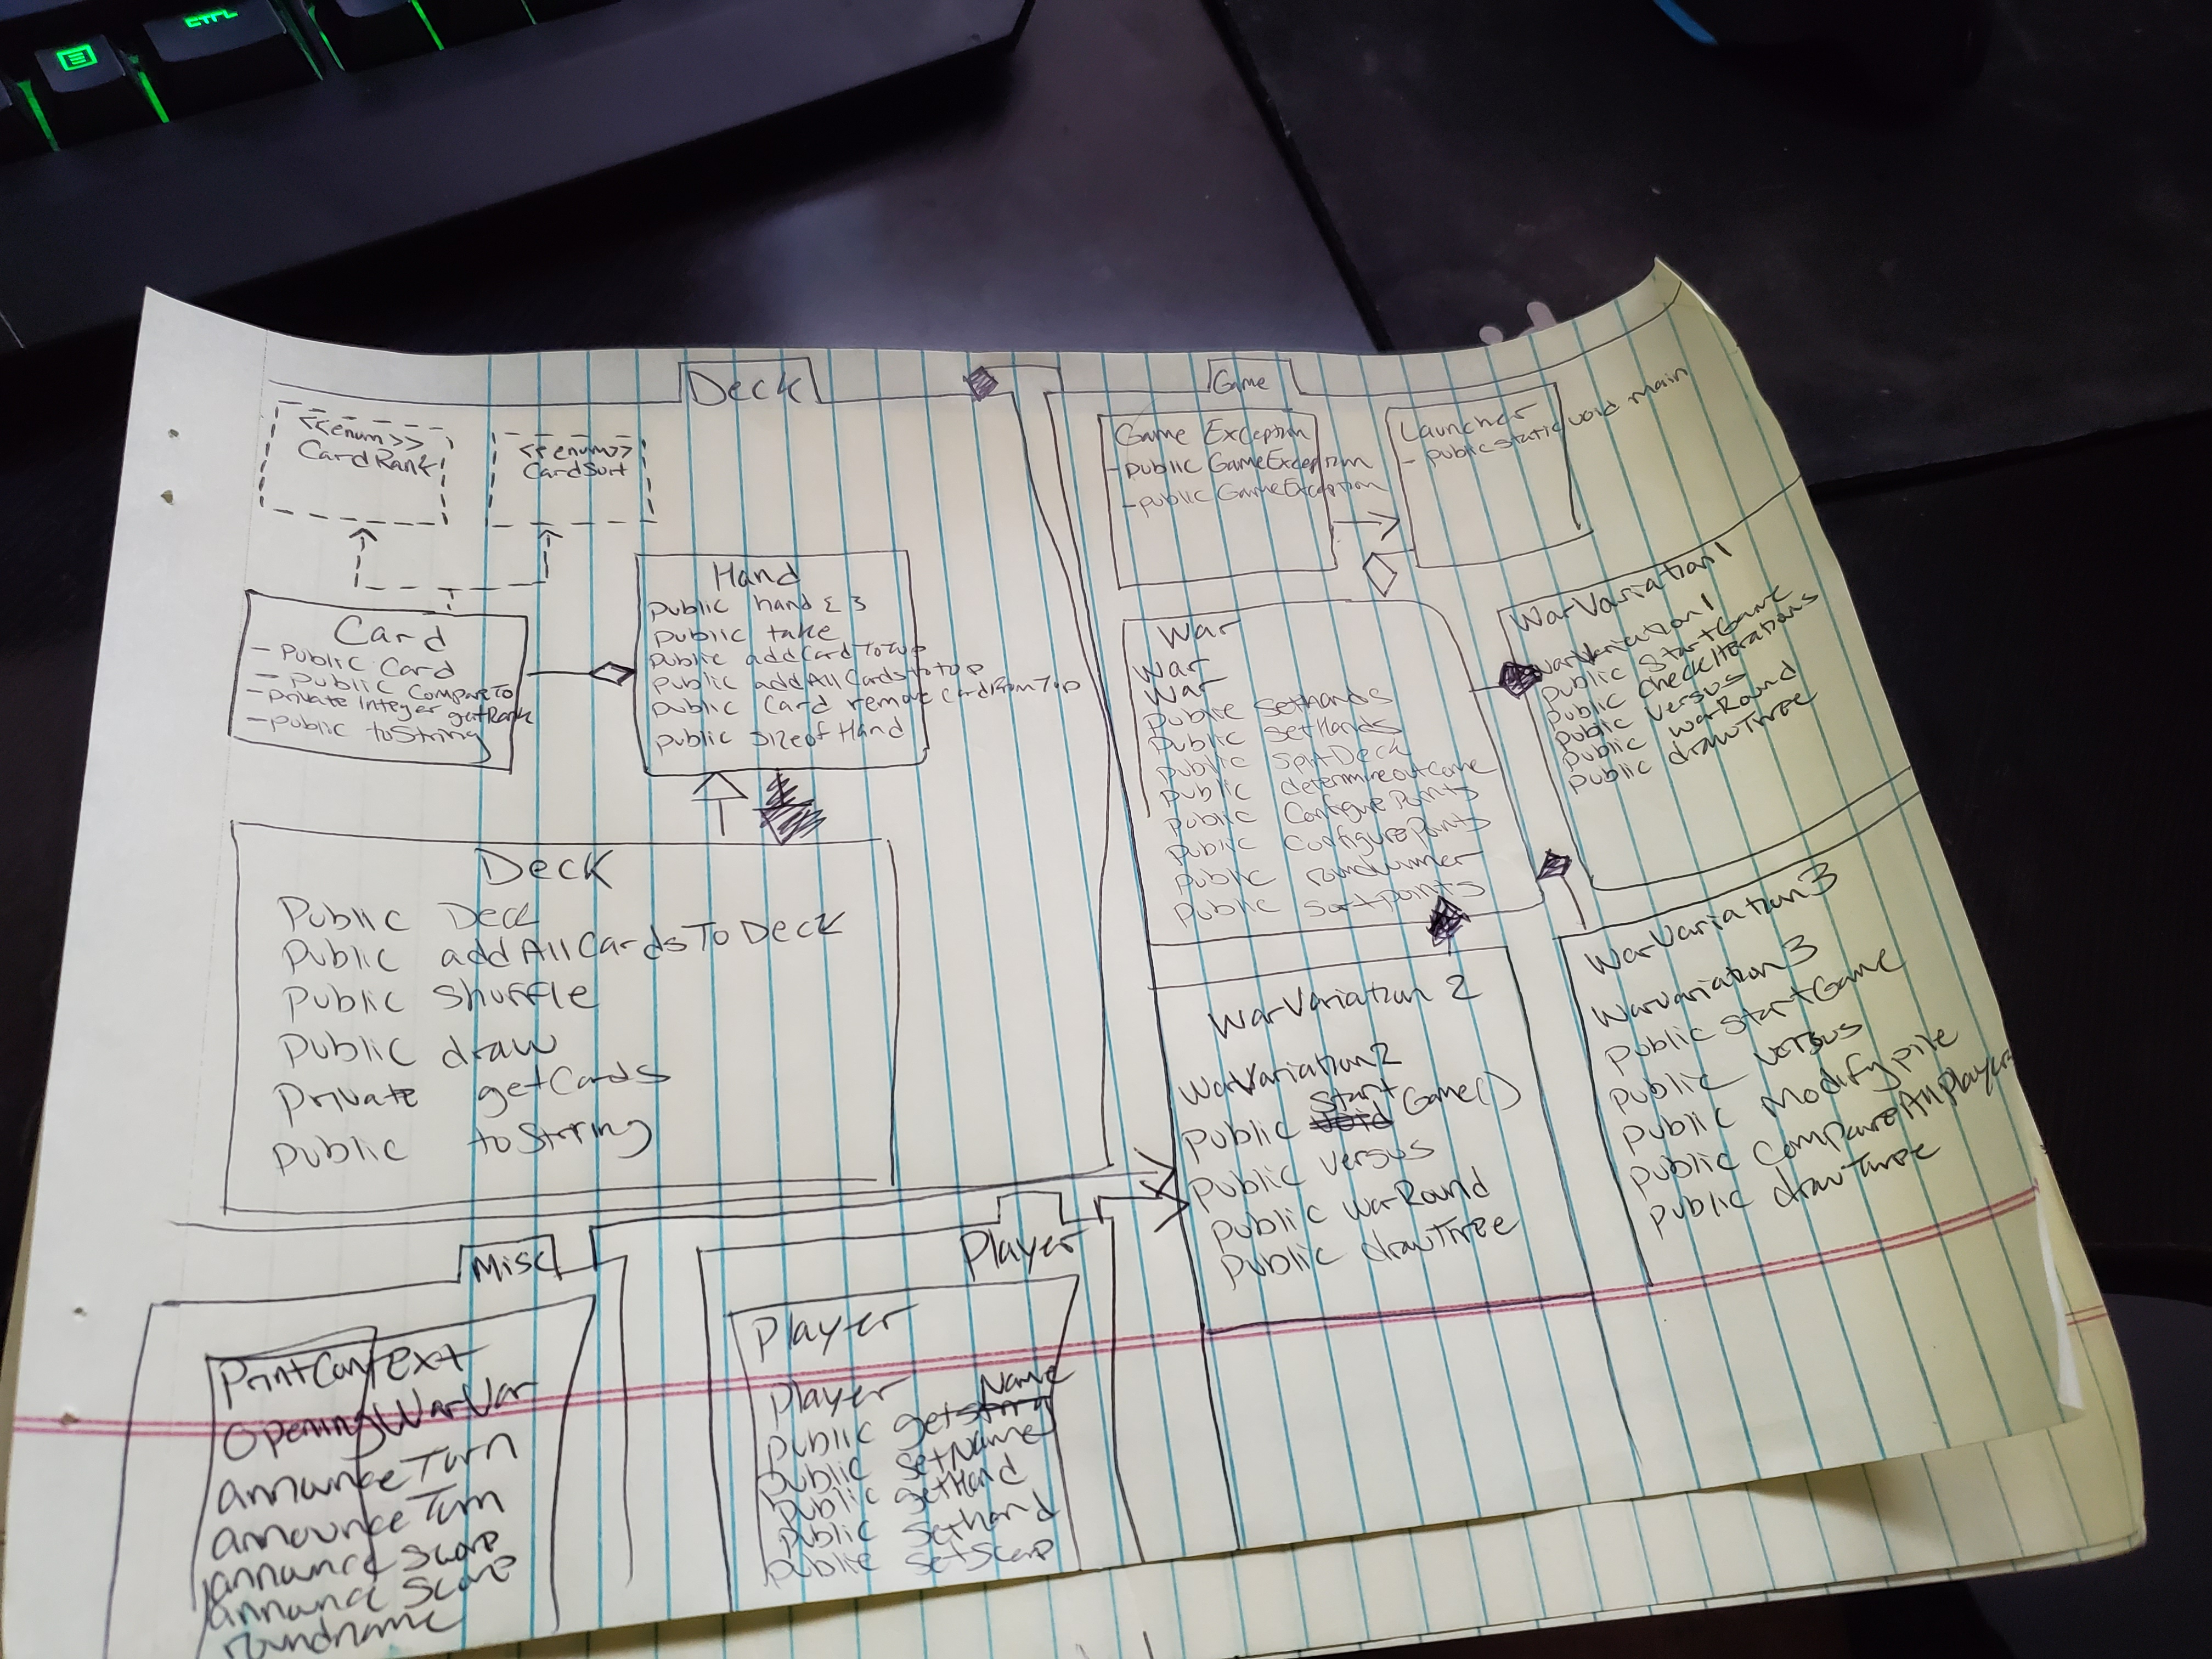 CTRL
Deck
<<enum>>
CardRank
<<enum>>
CardSuit
Card
- Public Card
- Public CompareTo
- Private Integer getRank
- Public toString
Hand
public hand
public take
public addCardToTop
public addAllCardstotop
public Card removeCardFromTop
public sizeofHand
Deck
Public Deck
Public addAllCardsToDeck
Public shuffle
Public draw
Private getCards
Public toString
Game
Game Exception
- public GameException
- public GameException
Launcher
- public static void main
War
War
War
Public Sethands
Public SetHands
Public SplitDeck
Public determineoutcome
Public ConfigurePoints
Public ConfigurePoints
Public roundwinner
Public sortpoints
WarVariation1
WarVariation1
Public StartGame
Public CheckIterations
Public versus
Public waRound
Public drawThree
WarVariation 2
WarVariation2
Public Start Game()
Public versus
Public waRound
Public drawThree
WarVariation3
WarVariation3
Public StartGame
Public versus
Public Modifypile
Public CompareAllPlayers
Public drawThree
Misc
PrintContext
OpeningWarVar
announce Turn
announce Turn
announce Score
announce Score
roundname
Player
Player
Player
Public getName
Public SetName
Public getHand
Public Sethand
Public SetScore